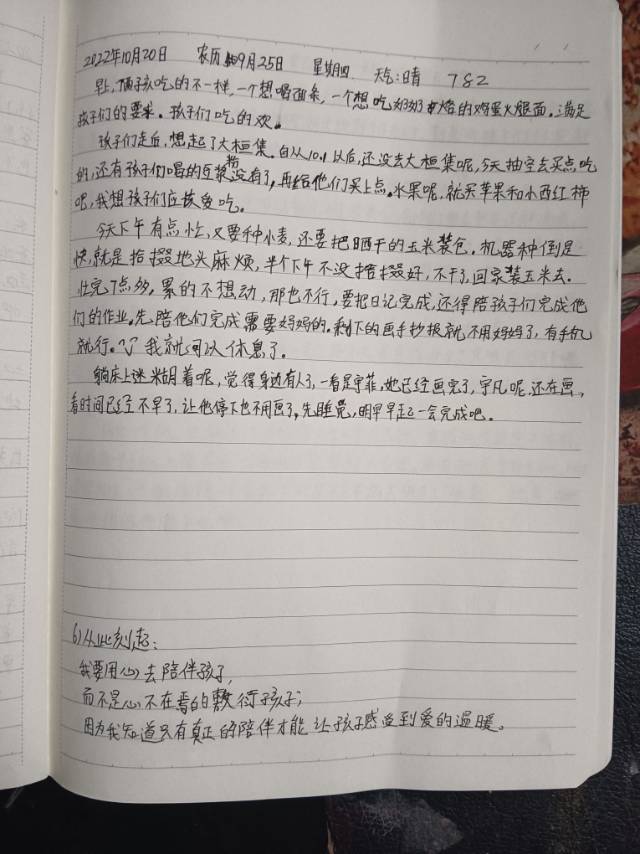 2022年10月20日 农历9月25日 星期四 天气:晴 782
早上,俩孩吃的不一样,一个想喝面条,一个想吃奶奶烙的鸡蛋火腿面。满足
孩子们的要求。孩子们吃的欢。
孩子们走后,想起了大桓集。自从10.1以后,还没去大桓集呢,今天抽空去买点吃
的,还有孩子们喝的豆浆粉没有了,再给他们买上点。水果呢,就买苹果和小西红柿
吧,我想孩子们应该爱吃。
今天下午有点忙,又要种小麦,还要把晒干的玉米装包。机器种倒是
快,就是拾掇地头麻烦,半个下午不没拾掇好,不干了,回家装玉米去。
忙完7点多,累的不想动,那也不行,要把日记完成,还得陪孩子们完成他
们的作业。先陪他们完成需要妈妈的。剩下的画手抄报就不用妈妈了,有手机
就行。我就可以休息了。
躺床上迷糊着呢,觉得身边有人了,一看是宇菲,她已经画完了,宇凡呢,还在画,
看时间已经不早了,让他停下也不用画了,先睡觉,明早早起一会完成吧。
6)从此刻起:
我要用心去陪伴孩子,
而不是心不在焉的敷衍孩子;
因为我知道只有真正的陪伴才能让孩子感受到爱的温暖。